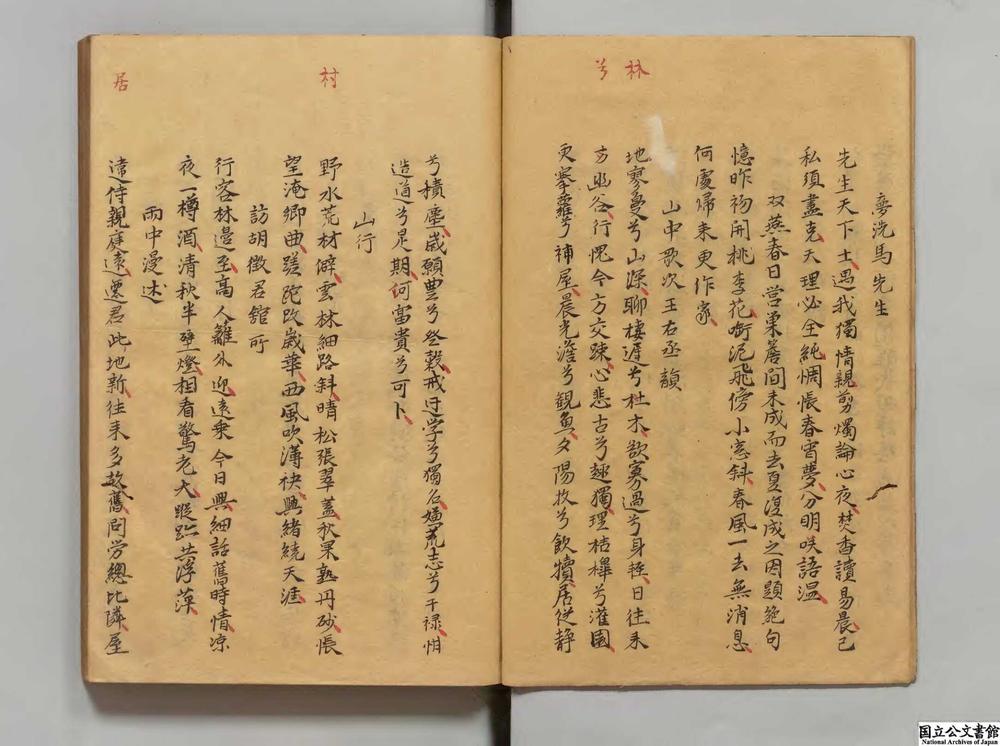 林
兮
夢洗馬先生
先生天下士遇我獨情親剪燭論心夜焚香讀易晨己
私須盡克天理必全純惆悵春宵夢分明咲語温
双燕春日営巣簷間未成而去夏復成之因題絶句
憶昨初開桃李花啣泥飛傍小窓斜春風一去無消息
何處帰来更作家
山中歌次王右丞韻
地寥曼兮山深聊棲遅兮杜木欲寡過兮身輕日往来
方幽谷行愧今方交踈心悲古兮趣獨理桔槹兮灌園
更牽蘿兮補屋晨光澹兮観魚夕陽牧兮飲犢居従静
村
居
兮積塵歳願豊兮登穀戒迂学兮獨名媿荒志兮干禄惟
造道兮是期何富貴兮可卜
山行
野水荒村僻雲林細路斜晴松張翠蓋秋果熟丹砂悵
望淹郷曲蹉跎改歳華西風吹薄袂興緒繞天涯
訪胡徴君舘所
行客林邉至高人籬外迎遠乗今日興細話舊時情凉
夜一樽酒清秋半壁燈相看驚老大蹤跡共浮萍
雨中漫述
違侍親庭遠遷君此地新往来多故舊問労總比隣屋
国立公文書館
National Archives of Japan